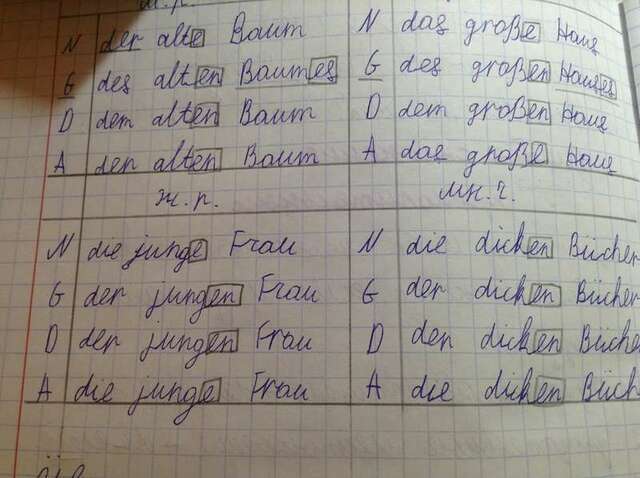 м.р.
N der alte Baum N das große Haus
G des alten Baumes G des großen Hauses
D dem alten Baum D dem großen Haus
A den alten Baum A das große Haus
ж.р. мн.ч.
N die junge Frau N die dicken Bücher
G der jungen Frau G der dicken Bücher
D der jungen Frau D den dicken Bücher
A die junge Frau A die dicken Büch